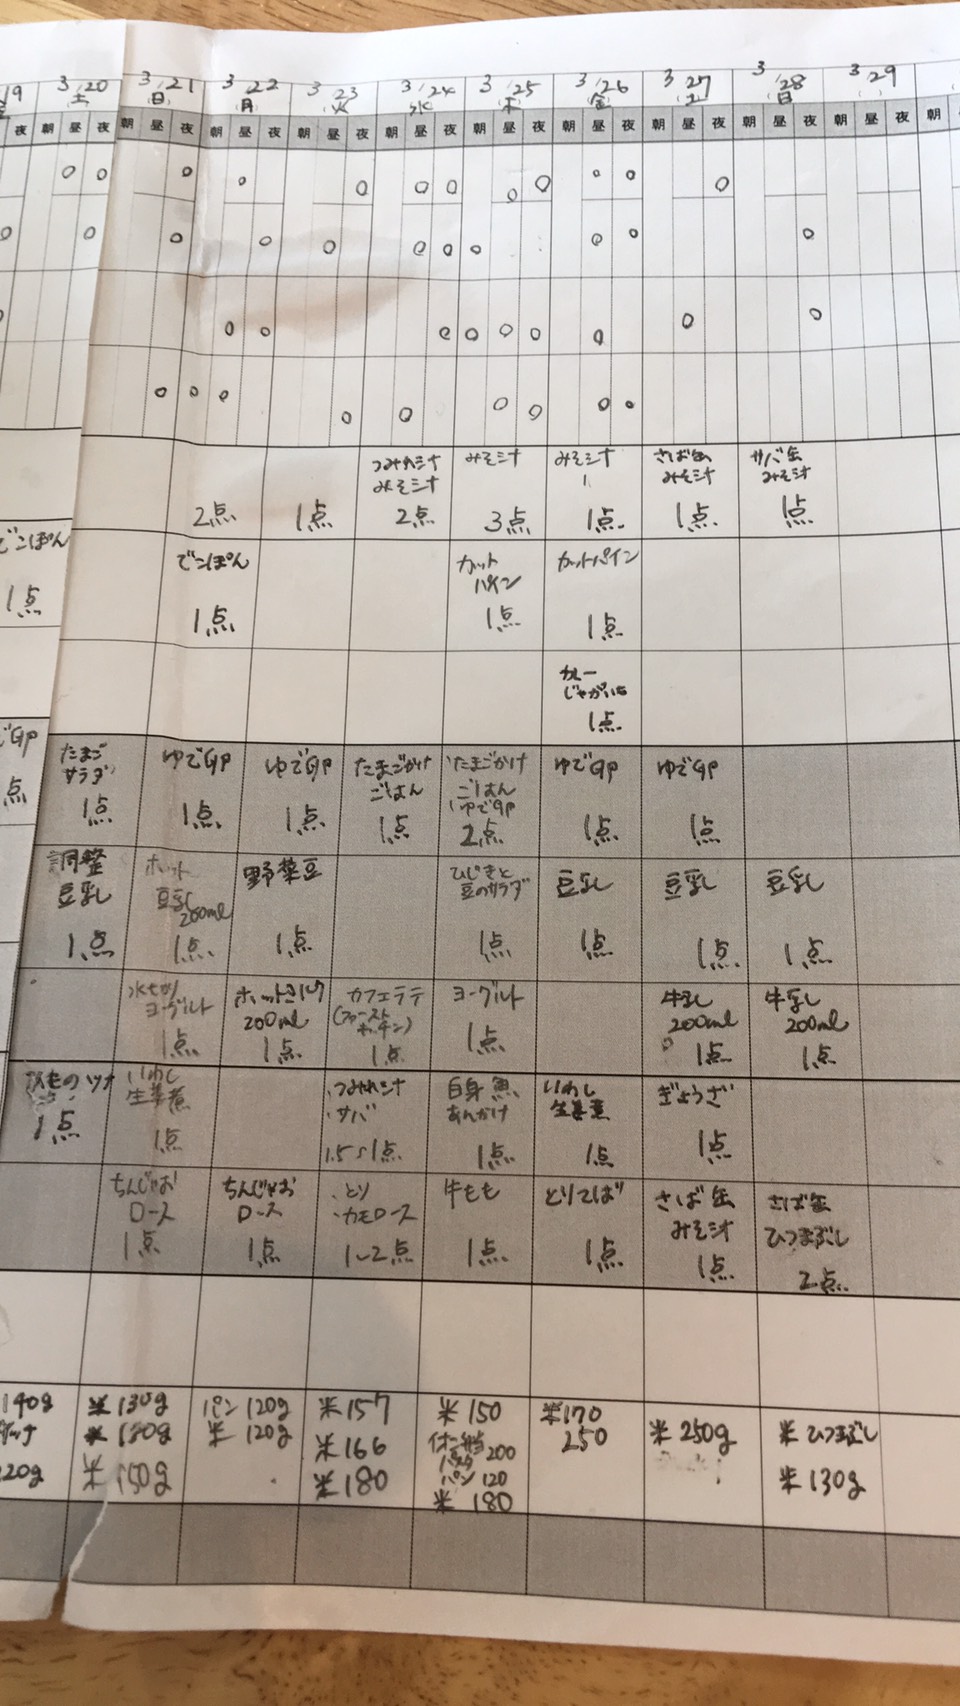 19 3/20 3/21 3/22 3/23 3/24 3/25 3/26 3/27 3/28 3/29
土 日 月 火 水 木 金 土 日
夜 朝 昼 夜 朝 昼 夜 朝 昼 夜 朝 昼 夜 朝 昼 夜 朝 昼 夜 朝 昼 夜 朝 昼 夜 朝 昼 夜 朝 昼 夜 朝
つみれ汁 みそ汁 みそ汁 さば缶 サバ缶
みそ汁 みそ汁 みそ汁
2点 1点 2点 3点 1点 1点 1点
でこぽん でこぽん カット カットパイン
パイン
1点 1点 1点 1点
カレー
じゃがいも
1点
たまご ゆでGP ゆでGP たまごかけ たまごかけ ゆでGP ゆでGP
サラダ ごはん ごはん
ゆでGP
点 1点 1点 1点 1点 2点 1点 1点
調整 ホット 野菜豆 ひじきと 豆乳 豆乳 豆乳
豆乳 豆乳 豆のサラダ
200ml
1点 1点 1点 1点 1点 1点 1点
ホットミルク カフェラテ ヨーグルト 牛乳 牛乳
ヨーグルト 200ml 200ml 200ml
1点 1点 1点 1点 1点 1点
いわし つみれ汁 白身魚 いわし ぎょうざ
生姜煮 サバ あんかけ 生姜煮
1点 1点 1.5〜1点 1点 1点 1点
ちんじゃお ちんじゃお とり 牛もも とりてば さば缶 さば缶
ロース ロース カモロース みそ汁 ひつまぶし
1点 1点 1〜2点 1点 1点 1点 2点
140g 米130g パン120g 米157 米150 米170 米250g 米ひつまぶし
米120g 米166 200 250 米130g
20g 米150g 米180 パン120
米180